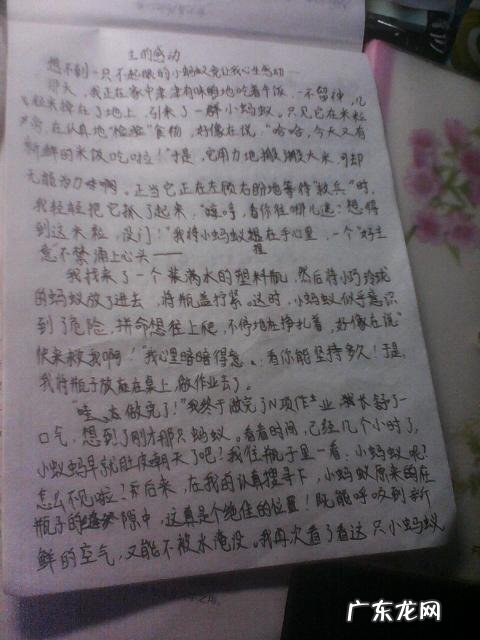 生的感动
想不到一只不起眼的小蚂蚁竟让我心生感动——
那天,我正在家中津津有味地吃着午饭,一不留神,几
粒米掉在了地上,引来了一群小蚂蚁。只见它在米粒
旁,在认真地“检验”食物,好像在说,“哈哈,今天又有
新鲜的米饭吃啦!”于是,它用力地搬搬大米,可却
无能为力啊。正当它正在左顾右盼地等待“救兵”时,
我轻轻把它抓了起来,“哼哼,看你往哪儿逃?想得
到这米粒,没门!”我将小蚂蚁握在手心里,一个“好主
意”不禁涌上心头——
我找来了一个装满水的塑料瓶,然后将小巧玲珑
的蚂蚁放了进去,将瓶盖拧紧。这时,小蚂蚁似乎意识
到了危险,拼命想往上爬,不停地在挣扎着,好像在说“
快来救我啊!”我心里暗暗得意,看你能坚持多久!于是,
我将瓶子放在桌上,做作业去了。
“哇,太做完了!”我终于做完了N项作业,我长舒了一
口气,想到了刚才那只蚂蚁。看看时间,已经几个小时了,
小蚂蚁早就肚皮朝天了吧!我往瓶子里一看:小蚂蚁呢?
怎么不见啦!后来,在我的认真搜寻下,小蚂蚁原来的在
瓶子的隙中,这真是个绝佳的位置!既能呼吸到新
鲜的空气,又能不被水淹没。我再次看了看这只小蚂蚁
广东龙网